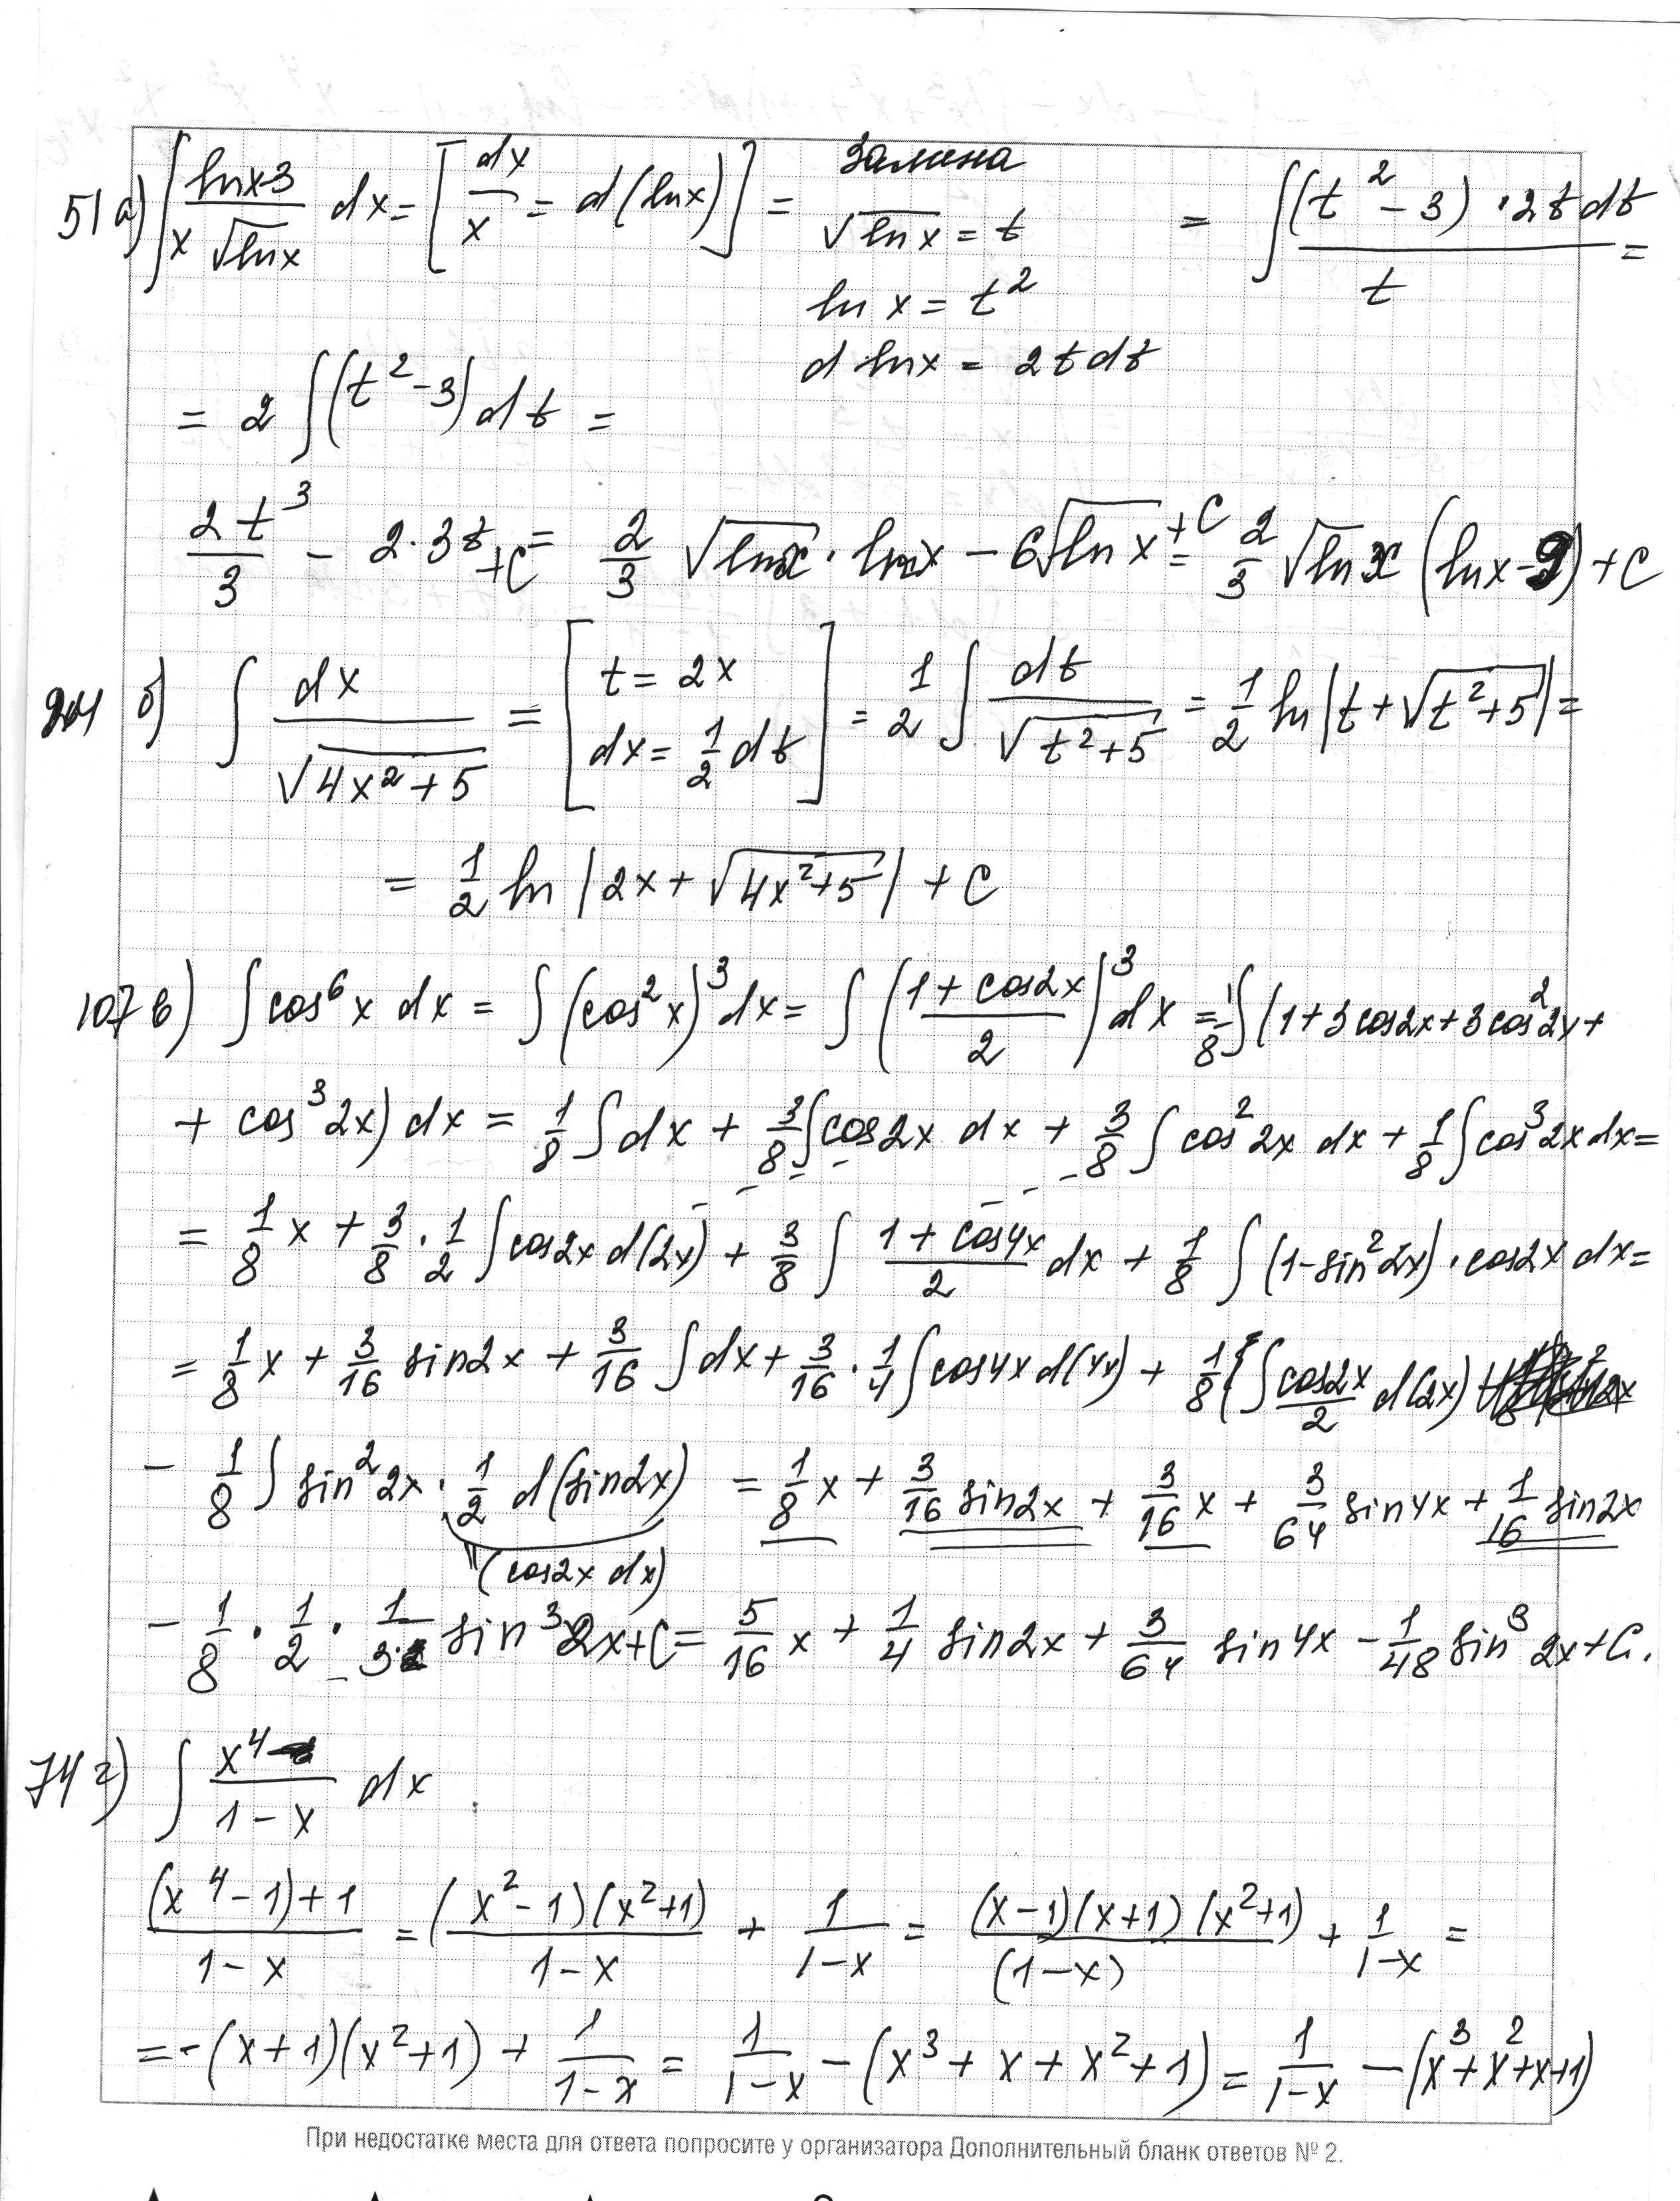 51 а) ∫ (ln x-3)/(x √(ln x)) dx = [dx/x = d(ln x)] = Замена √(ln x) = t = ∫ ((t² - 3) · 2t dt)/t =
ln x = t²
d ln x = 2t dt
= 2 ∫(t² - 3) dt =
2t³/3 - 2·3t + C = 2/3 √(ln x) · ln x - 6√(ln x) + C = 2/3 √(ln x) (ln x - 9) + C
б) ∫ dx/√(4x² + 5) = [t = 2x dx = 1/2 dt] = 1/2 ∫ dt/√(t² + 5) = 1/2 ln |t + √(t² + 5)| =
= 1/2 ln |2x + √(4x² + 5)| + C
107 в) ∫ cos⁶ x dx = ∫ (cos² x)³ dx = ∫ ((1 + cos 2x)/2)³ dx = 1/8 ∫ (1 + 3 cos 2x + 3 cos² 2x +
+ cos³ 2x) dx = 1/8 ∫ dx + 3/8 ∫ cos 2x dx + 3/8 ∫ cos² 2x dx + 1/8 ∫ cos³ 2x dx =
= 1/8 x + 3/8 · 1/2 ∫ cos 2x d(2x) + 3/8 ∫ (1 + cos 4x)/2 dx + 1/8 ∫ (1 - sin² 2x) · cos 2x dx =
= 1/8 x + 3/16 sin 2x + 3/16 ∫ dx + 3/16 · 1/4 ∫ cos 4x d(4x) + 1/8 ∫ (cos 2x)/2 d(2x)
- 1/8 ∫ sin² 2x · 1/2 d(sin 2x) = 1/8 x + 3/16 sin 2x + 3/16 x + 3/64 sin 4x + 1/16 sin 2x
(cos 2x dx)
- 1/8 · 1/2 · 1/3 sin³ 2x + C = 5/16 x + 1/4 sin 2x + 3/64 sin 4x - 1/48 sin³ 2x + C.
74 г) ∫ x⁴/(1 - x) dx
((x⁴ - 1) + 1)/(1 - x) = ((x² - 1)(x² + 1))/(1 - x) + 1/(1 - x) = ((x - 1)(x + 1)(x² + 1))/((1 - x)) + 1/(1 - x) =
= -(x + 1)(x² + 1) + 1/(1 - x) = 1/(1 - x) - (x³ + x + x² + 1) = 1/(1 - x) - (x³ + x² + x + 1)
При недостатке места для ответа попросите у организатора Дополнительный бланк ответов № 2.